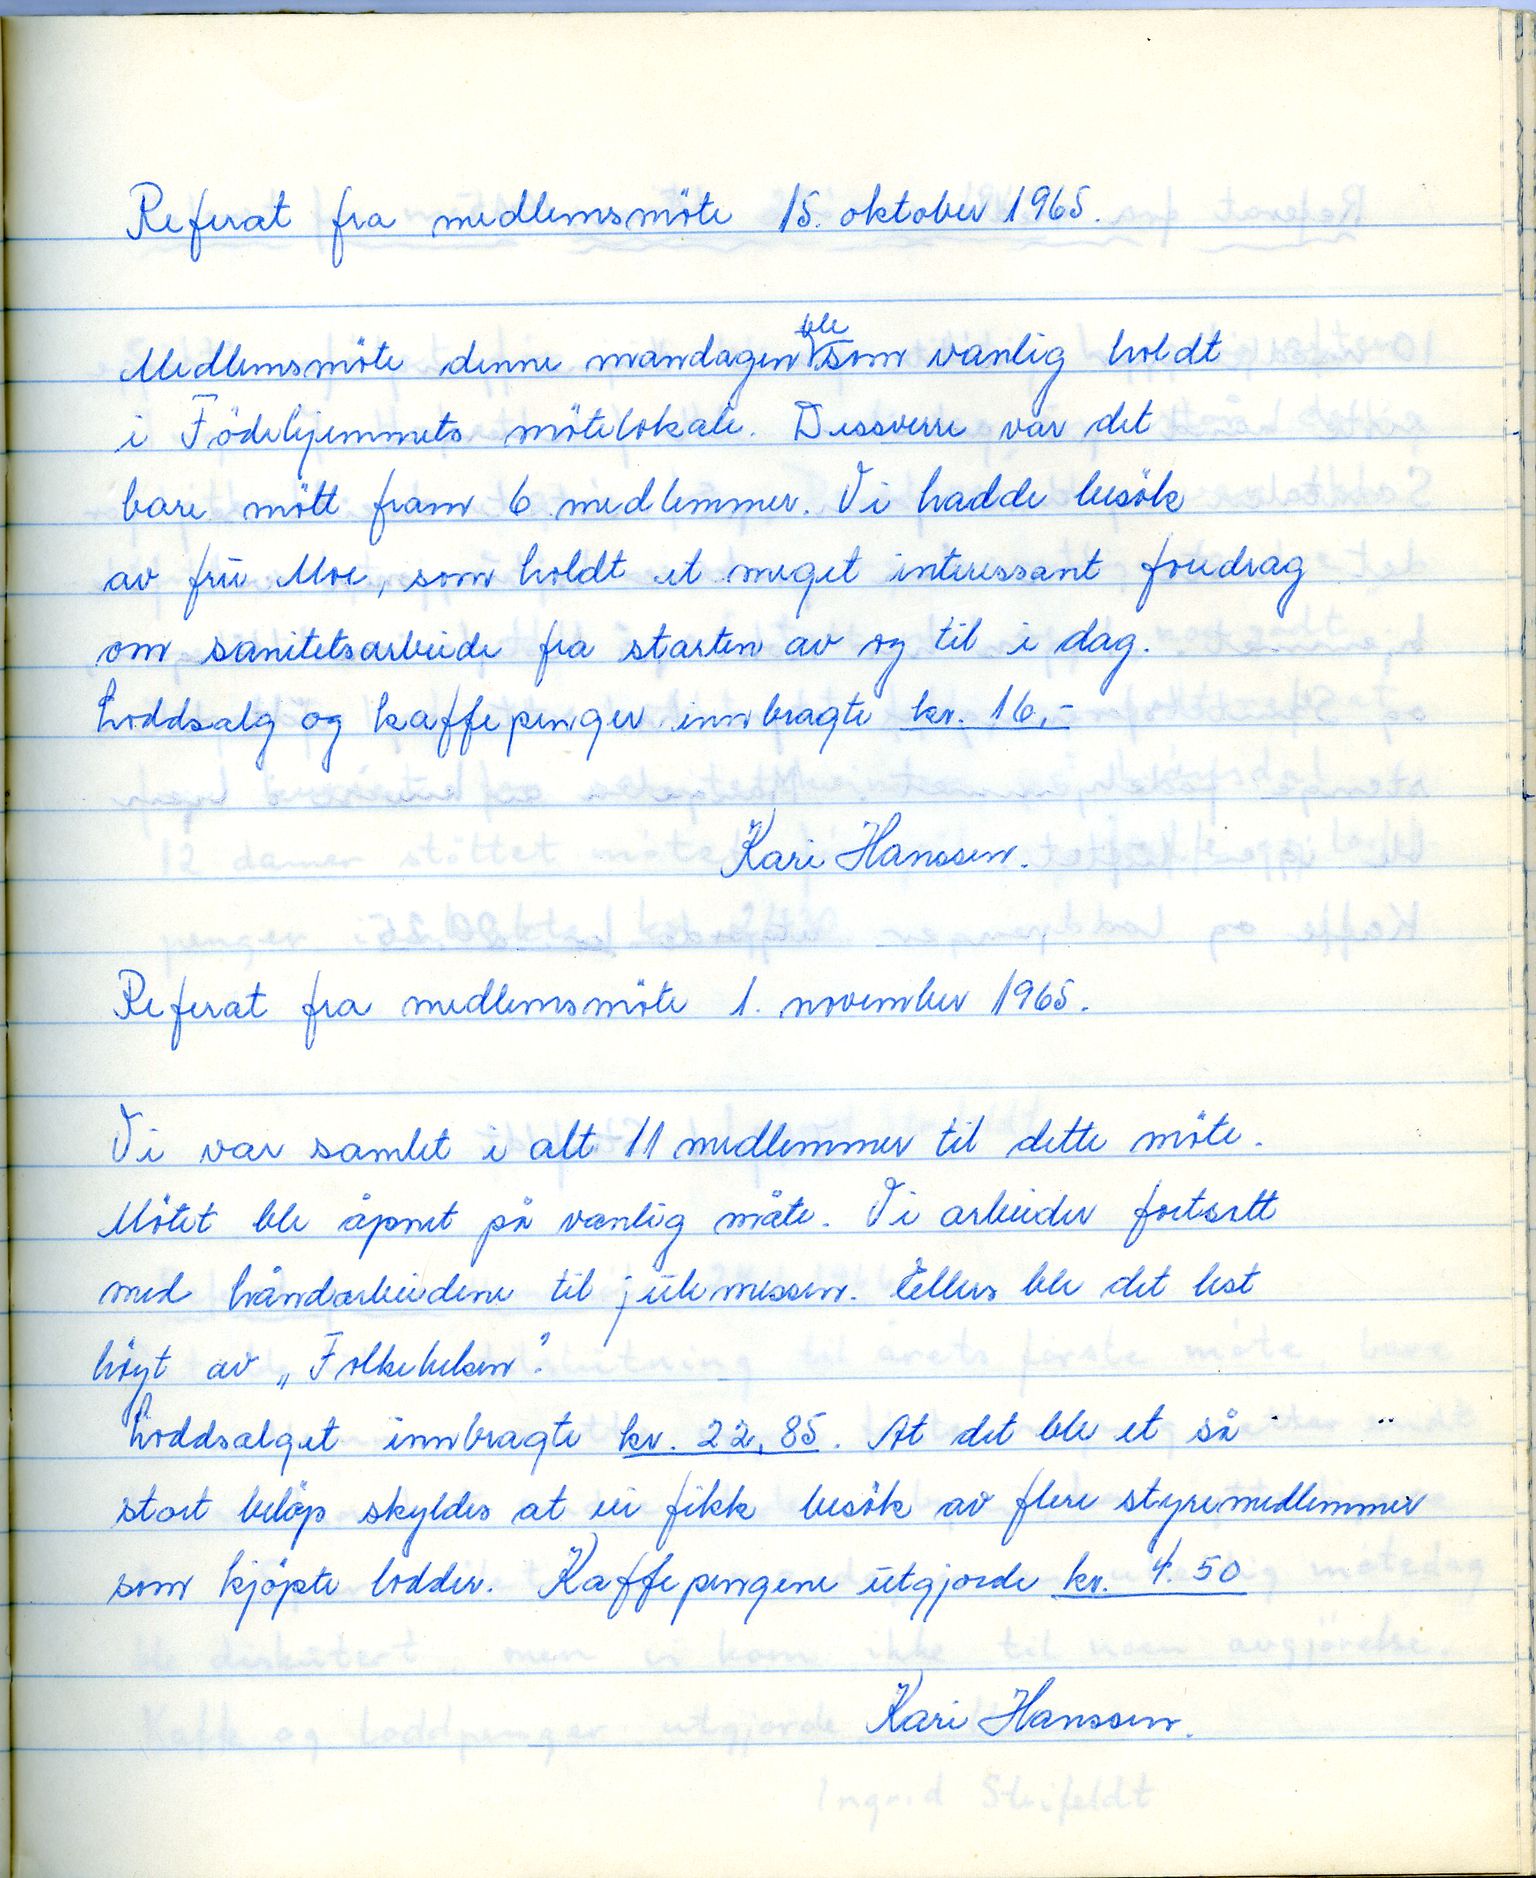 Referat fra medlemsmöte 15. oktober 1965.
Medlemsmöte denne mandagen ble som vanlig holdt
i Födehjemmets mötelokale. Dessverre var det
bare mött fram 6 medlemmer. Vi hadde besök
av fru Moe, som holdt et meget interessant foredrag
om sanitetsarbeide fra starten av og til i dag.
Loddsalg og kaffepenger innbragte kr. 16,-
Kari Hanssen.
Referat fra medlemsmöte 1. november 1965.
Vi var samlet i alt 11 medlemmer til dette möte.
Mötet ble åpnet på vanlig måte. Vi arbeider fortsatt
med håndarbeidene til julemessen. Ellers ble det lest
höyt av „Folkehelsen".
Loddsalget innbragte kr. 22,85. At det ble et så
stort belöp skyldes at vi fikk besök av flere styremedlemmer
som kjöpte lodder. Kaffepengene utgjorde kr. 4.50
Kari Hanssen.